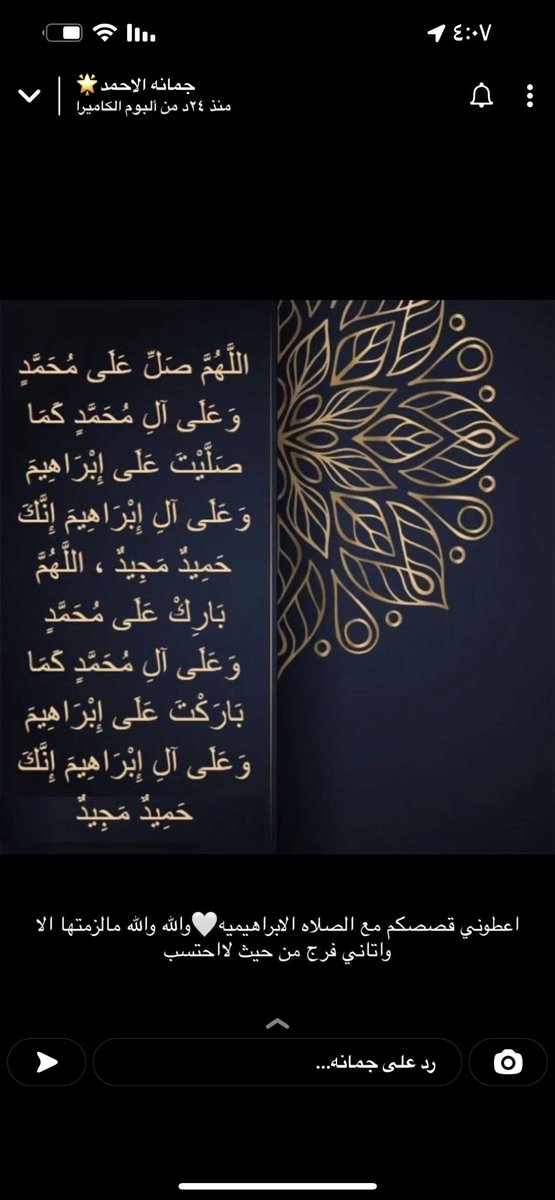 ٤:٠٧
جمانه الاحمد🌟
منذ ٢٤د من ألبوم الكاميرا
اللَّهُمَّ صَلِّ عَلَى مُحَمَّدٍ
وَعَلَى آلِ مُحَمَّدٍ كَمَا
صَلَّيْتَ عَلَى إِبْرَاهِيمَ
وَعَلَى آلِ إِبْرَاهِيمَ إِنَّكَ
حَمِيدٌ مَجِيدٌ ، اللَّهُمَّ
بَارِكْ عَلَى مُحَمَّدٍ
وَعَلَى آلِ مُحَمَّدٍ كَمَا
بَارَكْتَ عَلَى إِبْرَاهِيمَ
وَعَلَى آلِ إِبْرَاهِيمَ إِنَّكَ
حَمِيدٌ مَجِيدٌ
اعطوني قصصكم مع الصلاه الابراهيميه🤍والله والله مالزمتها الا
واتاني فرج من حيث لااحتسب
رد على جمانه...